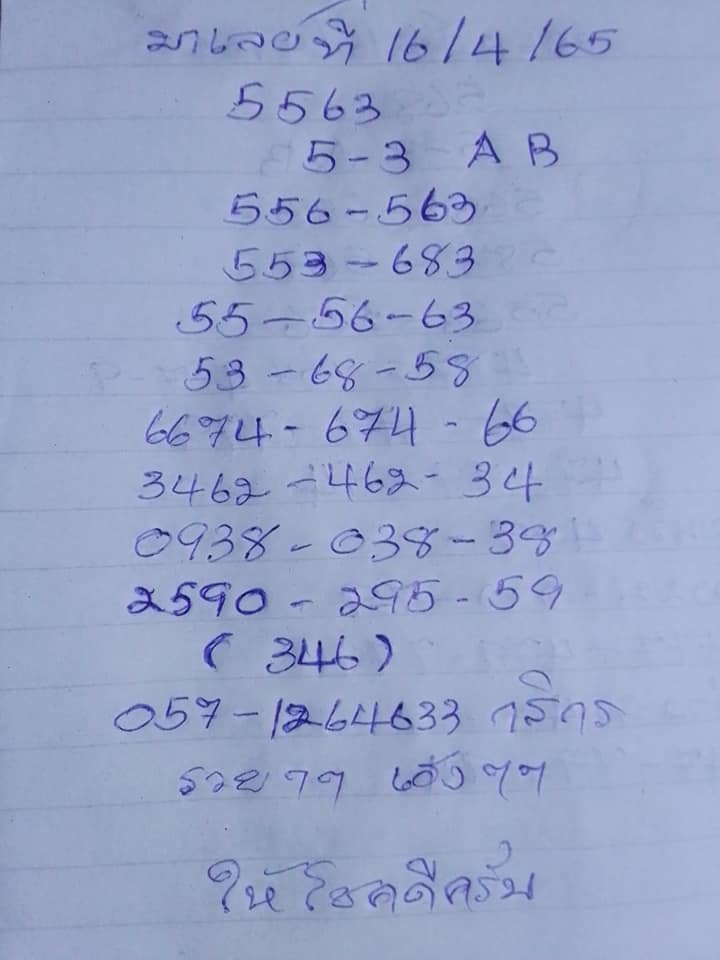 มาเลย์ ที่ 16/4/65
5563
5-3 A B
556-563
553-683
55-56-63
53-68-58
6674-674-66
3462-462-34
0938-038-38
2590-295-59
(346)
057-1264633 กสิกร
รวยๆๆ เฮงๆๆ
ให้โชคดีครับ